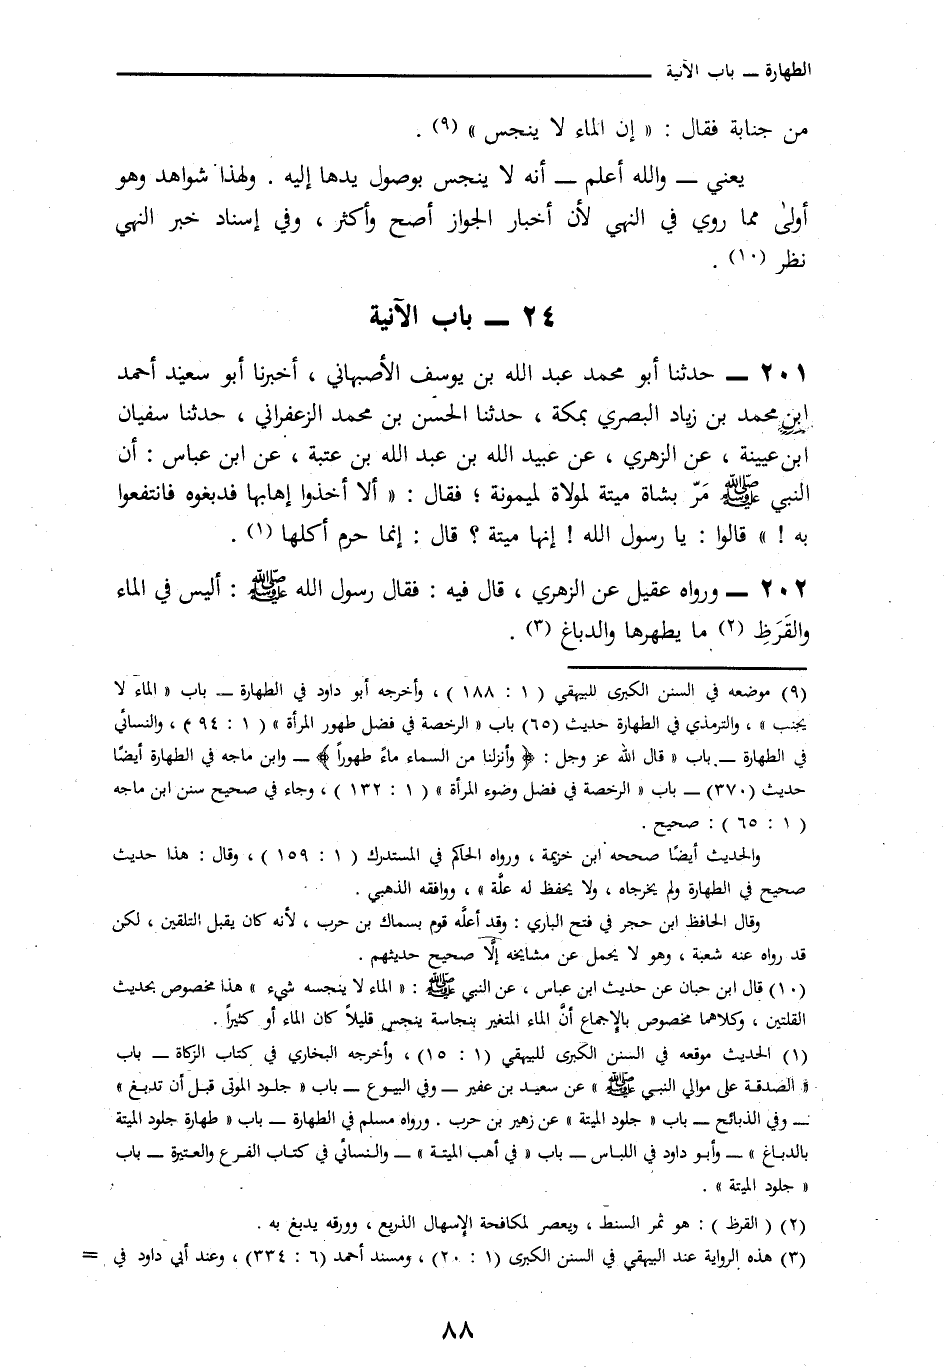 الطهارة ــ باب الآنية
من جنابة فقال : « إن الماء لا ينجس » (٩) .
يعني ــ والله أعلم ــ أنه لا ينجس بوصول يدها إليه . ولهذا شواهد وهو
أولىٰ مما روي في النهي لأن أخبار الجواز أصح وأكثر ، وفي إسناد خبر النهي
نظر (١٠) .
٢٤ ــ باب الآنية
٢٠١ ــ حدثنا أبو محمد عبد الله بن يوسف الأصبهاني ، أخبرنا أبو سعيد أحمد
ابن محمد بن زياد البصري بمكة ، حدثنا الحسن بن محمد الزعفراني ، حدثنا سفيان
ابن عيينة ، عن الزهري ، عن عبيد الله بن عبد الله بن عتبة ، عن ابن عباس : أن
النبي ﷺ مَرّ بشاة ميتة لمولاة لميمونة ؛ فقال : « ألا أخذوا إهابها فدبغوه فانتفعوا
به ! » قالوا : يا رسول الله ! إنها ميتة ؟ قال : إنما حرم أكلها (١) .
٢٠٢ ــ ورواه عقيل عن الزهري ، قال فيه : فقال رسول الله ﷺ : أليس في الماء
والقَرَظِ (٢) ما يطهرها والدباغ (٣) .
(٩) موضعه في السنن الكبرى للبيهقي ( ١ : ١٨٨ ) ، وأخرجه أبو داود في الطهارة ــ باب « الماء لا
يجنب » ، والترمذي في الطهارة حديث (٦٥) باب « الرخصة في فضل طهور المرأة » ( ١ : ٩٤ ) ، والنسائي
في الطهارة ــ باب « قال الله عز وجل : ﴿ وأنزلنا من السماء ماءً طهوراً ﴾ ــ وابن ماجه في الطهارة أيضًا
حديث (٣٧٠) ــ باب « الرخصة في فضل وضوء المرأة » ( ١ : ١٣٢ ) ، وجاء في صحيح سنن ابن ماجه
( ١ : ٦٥ ) : صحيح .
والحديث أيضًا صححه ابن خزيمة ، ورواه الحاكم في المستدرك ( ١ : ١٥٩ ) ، وقال : هذا حديث
صحيح في الطهارة ولم يخرجاه ، ولا يحفظ له علَّة » ، ووافقه الذهبي .
وقال الحافظ ابن حجر في فتح الباري : وقد أعلَّه قوم بسماك بن حرب ، لأنه كان يقبل التلقين ، لكن
قد رواه عنه شعبة ، وهو لا يحمل عن مشايخه إلَّا صحيح حديثهم .
(١٠) قال ابن حبان عن حديث ابن عباس ، عن النبي ﷺ : « الماء لا ينجسه شيء » هذا مخصوص بحديث
القلتين ، وكلاهما مخصوص بالإجماع أنَّ الماء المتغير بنجاسة ينجس قليلاً كان الماء أو كثيراً .
(١) الحديث موقعه في السنن الكبرى للبيهقي (١ : ١٥) ، وأخرجه البخاري في كتاب الزكاة ــ باب
« الصدقة على موالي النبي ﷺ » عن سعيد بن عفير ــ وفي البيوع ــ باب « جلود الموتى قبل أن تدبغ »
ــ وفي الذبائح ــ باب « جلود الميتة » عن زهير بن حرب . ورواه مسلم في الطهارة ــ باب « طهارة جلود الميتة
بالدباغ » ــ وأبو داود في اللباس ــ باب « في أهب الميتة » ــ والنسائي في كتاب الفرع والعتيرة ــ باب
« جلود الميتة » .
(٢) ( القرظ ) : هو ثمر السنط ، ويعصر لمكافحة الإسهال الذريع ، وورقه يدبغ به .
(٣) هذه الرواية عند البيهقي في السنن الكبرى (١ : ٢٠) ، ومسند أحمد (٦ : ٣٣٤) ، وعند أبي داود في =
٨٨